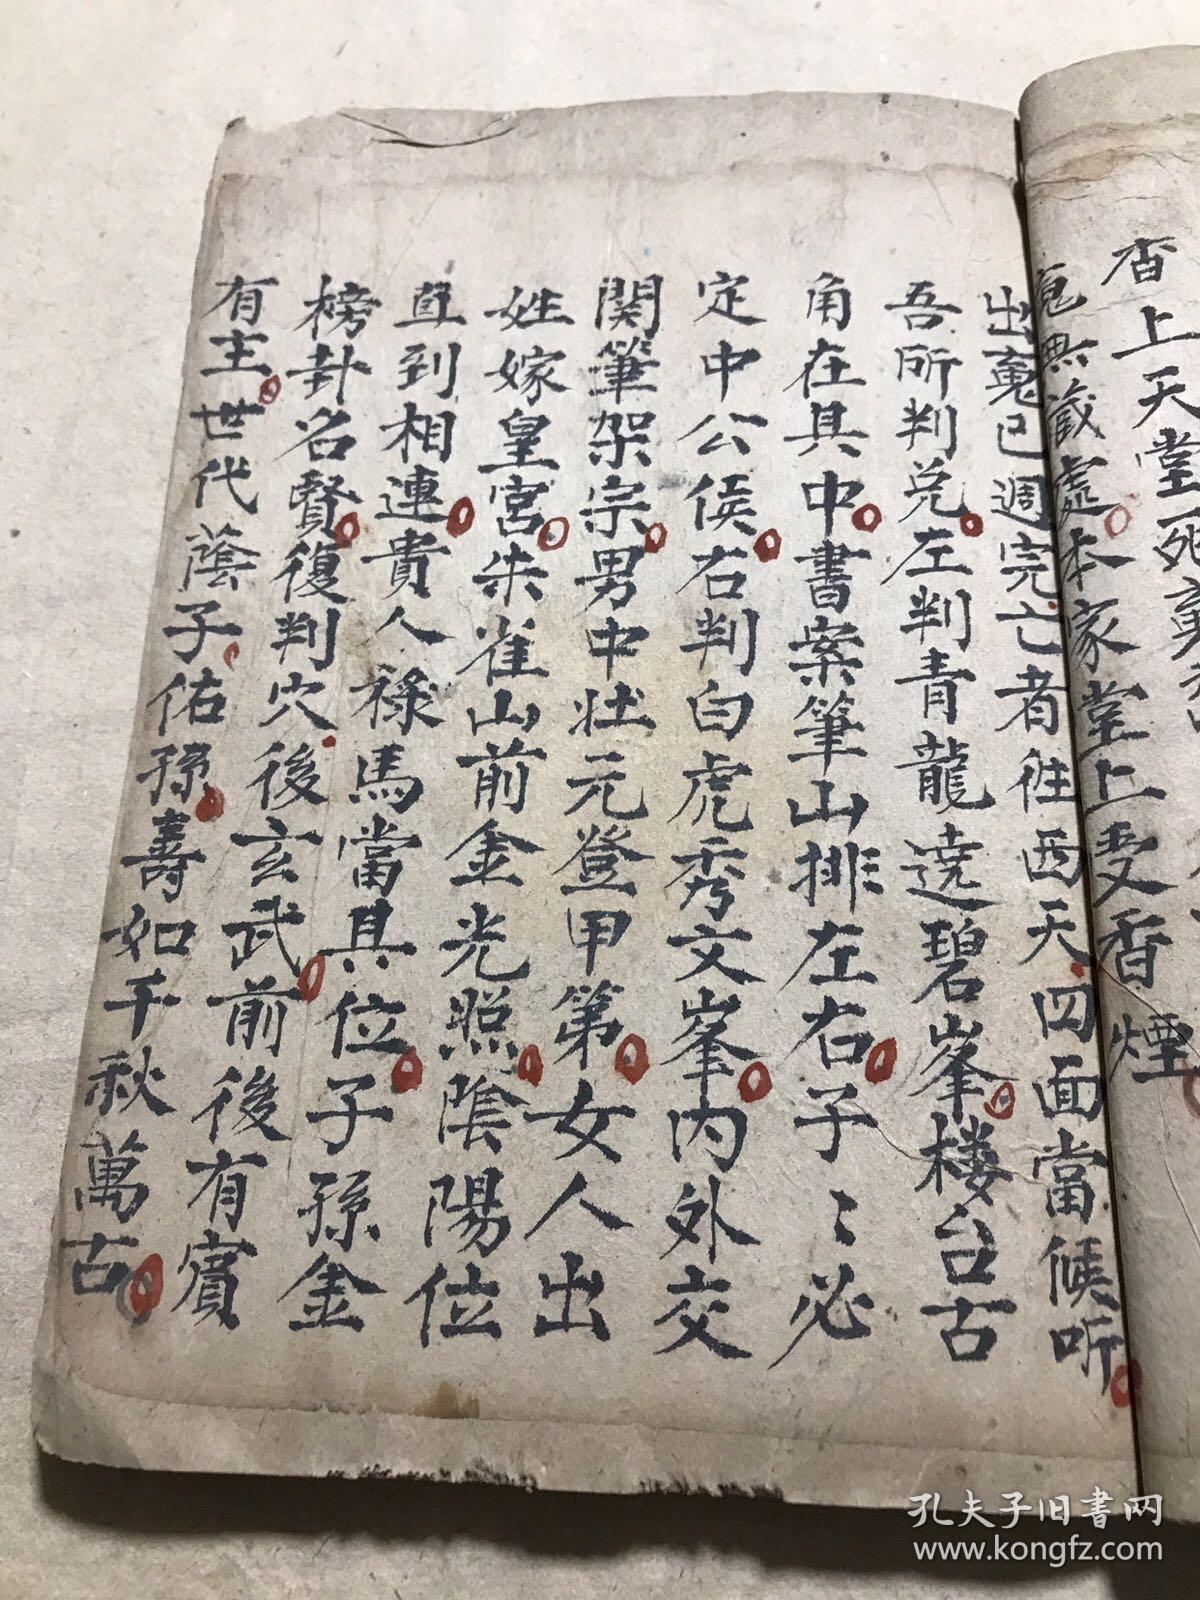 香上天堂死
魂無藏處本家堂上受香煙
出冤已週完亡者徃西天四面當候听
吾所判兑左判青龍遶碧峯楼台古
角在具中書案筆山排左右子〻必
定中公侯右判白虎秀文峯内外交
関筆架宗男中壮元登甲第女人出
姓嫁皇宮朱雀山前金光照陰陽位
直到相連貴人祿馬當具位子孫金
榜卦名賢復判穴後玄武前後有賔
有主世代蔭子佑孫壽如千秋萬古
孔夫子旧书网
www.kongfz.com